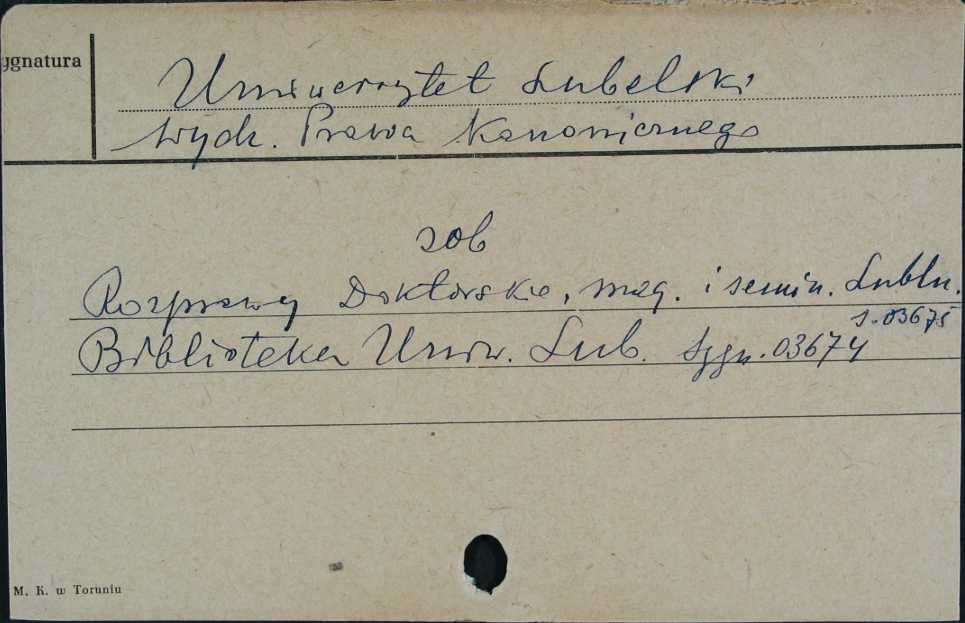 ygnatura
Uniwersytet Lubelski
Wydz. Prawa Kanonicznego
zob
Rozprawy Doktorskie, mag. i semin. Lubln.
s. 03675
Biblioteka Uniw. Lub. Sygn. 03674
M. K. w Toruniu